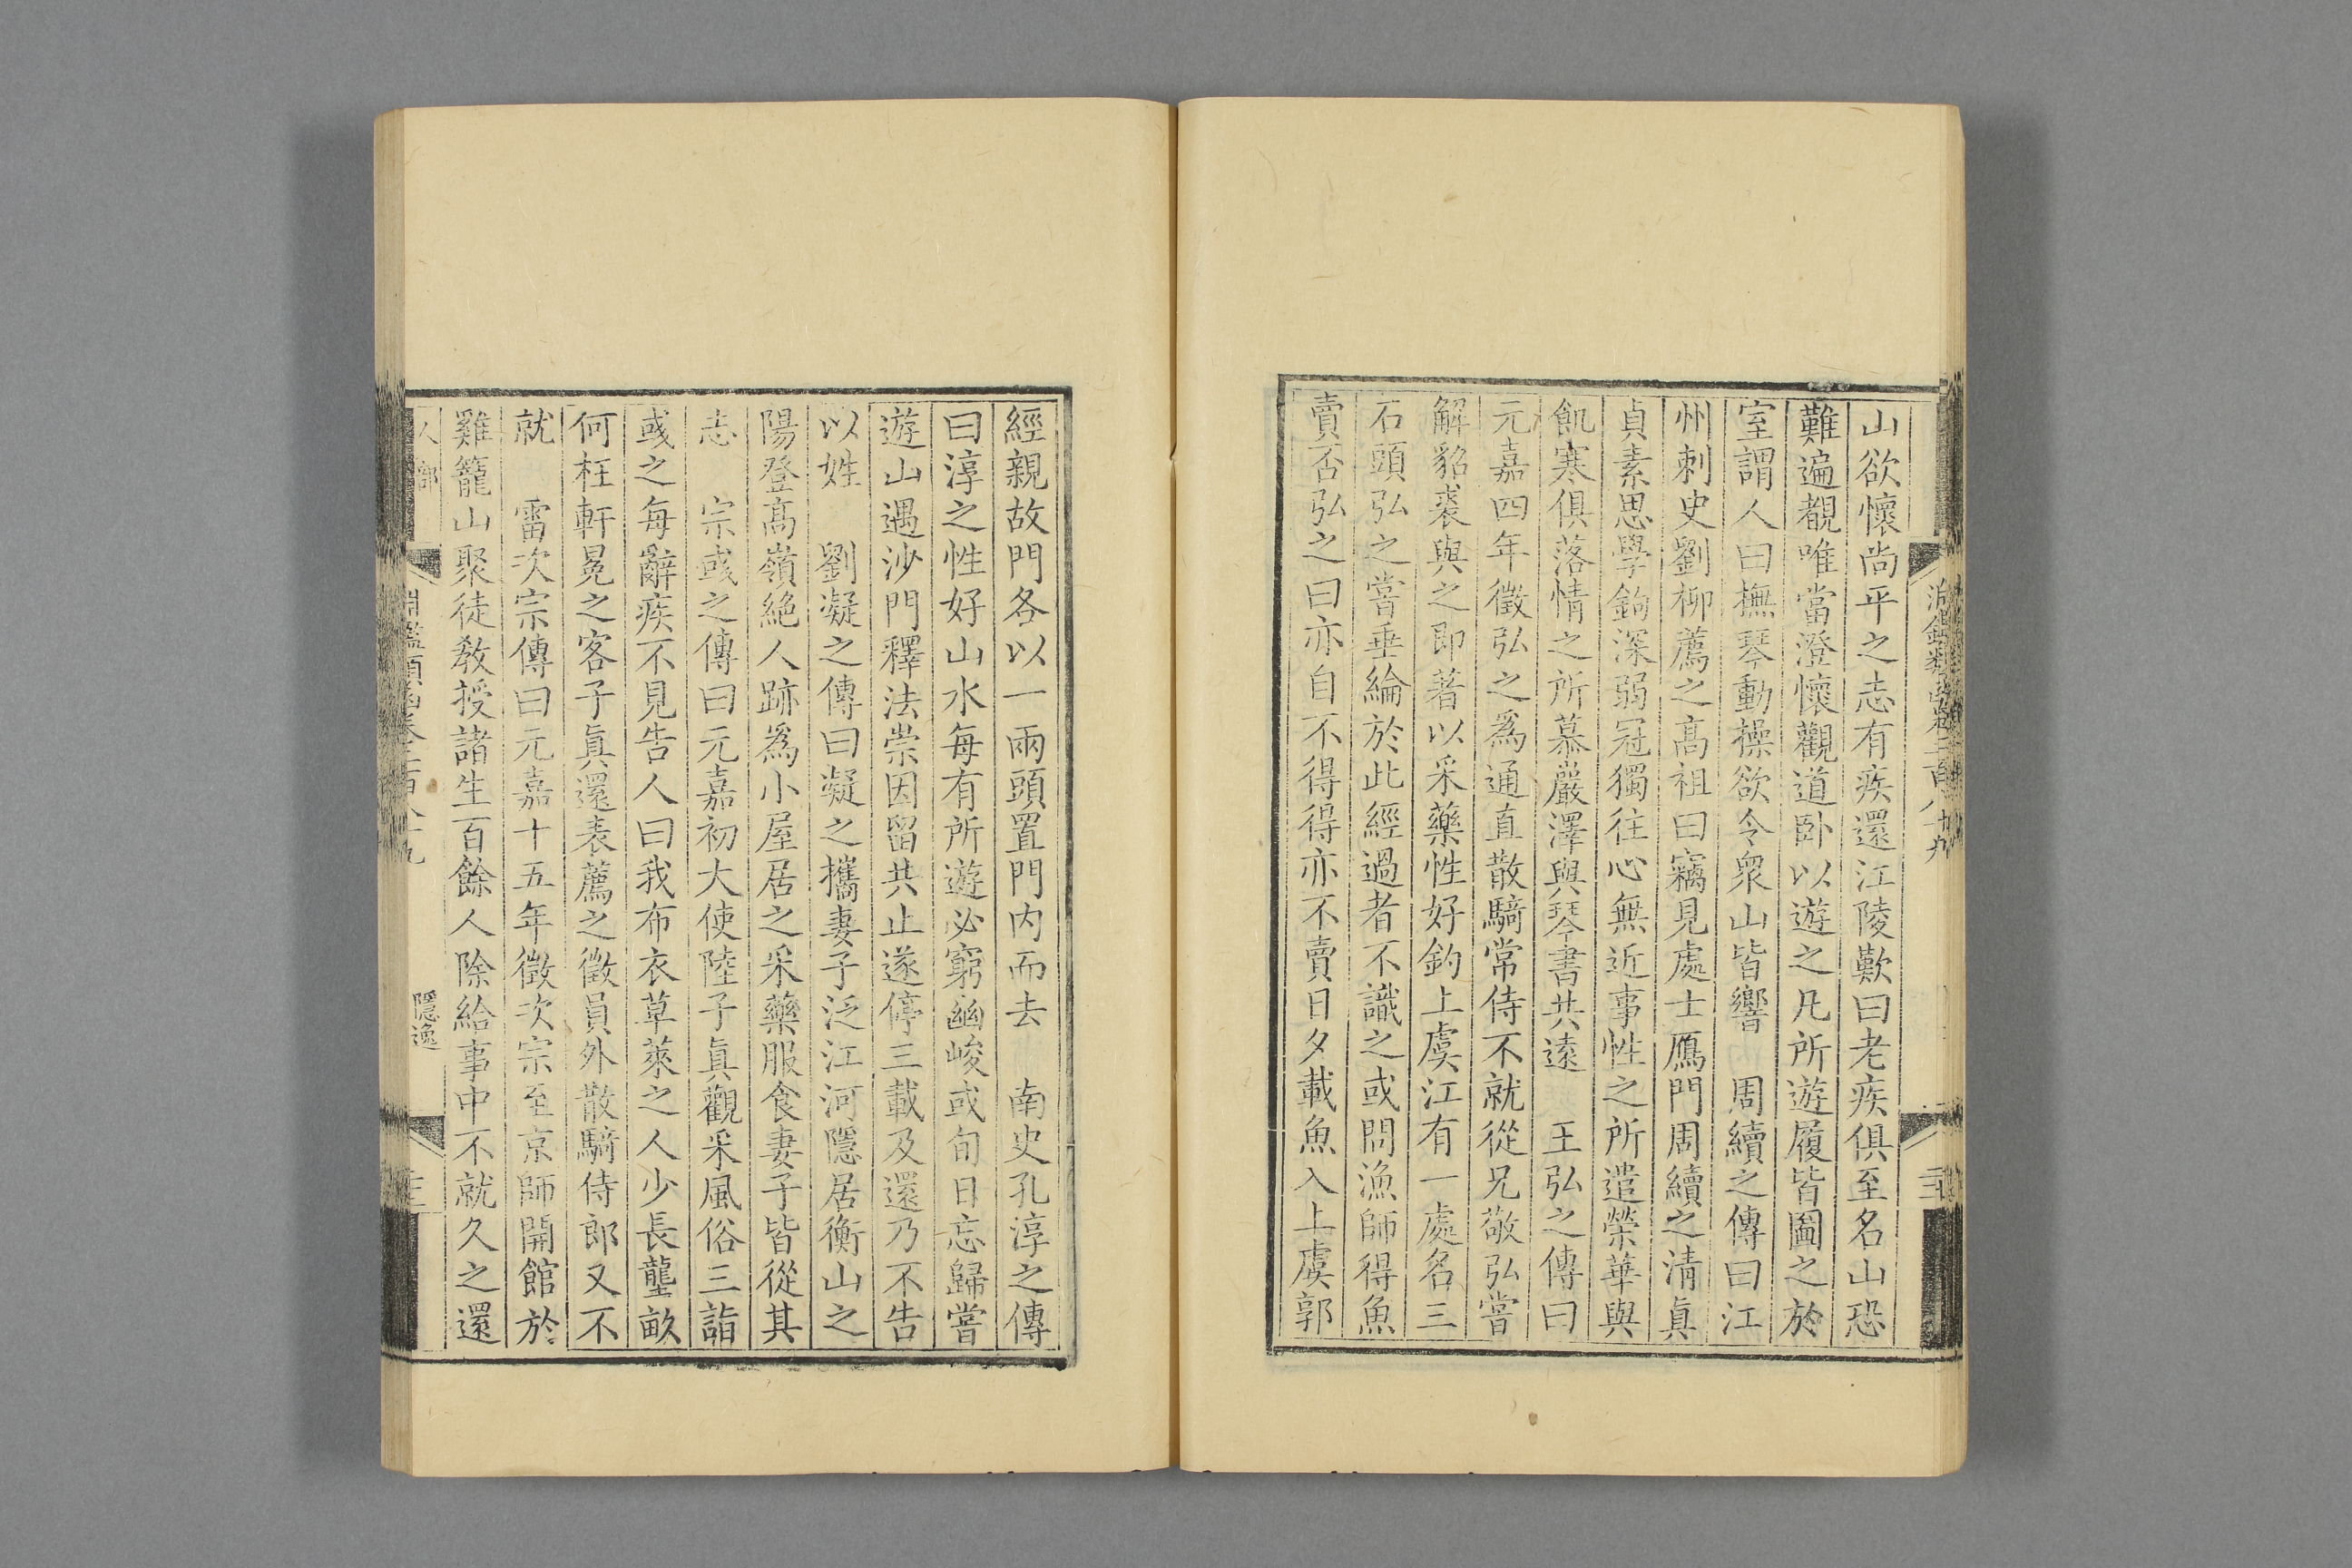 山欲懷尚平之志有疾還江陵歎曰老疾俱至名山恐
難遍覩唯當澄懷觀道臥以遊之凡所遊履皆圖之於
室謂人曰撫琴動操欲令衆山皆響 周續之傳曰江
州刺史劉柳薦之高祖曰竊見處士鴈門周續之清眞
貞素思學鉤深弱冠獨往心無近事性之所遣榮華與
飢寒俱落情之所慕巖澤與琴書共遠 王弘之傳曰
元嘉四年徵弘之爲通直散騎常侍不就從兄敬弘嘗
解貂裘與之即著以采藥性好釣上虞江有一處名三
石頭弘之嘗垂綸於此經過者不識之或問漁師得魚
賣否弘之曰亦自不得得亦不賣日夕載魚入上虞郭
經親故門各以一兩頭置門內而去 南史孔淳之傳
曰淳之性好山水每有所遊必窮幽峻或旬日忘歸嘗
遊山遇沙門釋法崇因留共止遂停三載及還乃不告
以姓 劉凝之傳曰凝之攜妻子泛江河隱居衡山之
陽登高嶺絶人跡爲小屋居之采藥服食妻子皆從其
志 宗彧之傳曰元嘉初大使陸子眞觀采風俗三詣
彧之每辭疾不見告人曰我布衣草萊之人少長壟畝
何枉軒冕之客子眞還表薦之徵員外散騎侍郎又不
就 雷次宗傳曰元嘉十五年徵次宗至京師開館於
雞籠山聚徒教授諸生百餘人除給事中不就久之還
人部 淵鑑類函卷二百八十九 隱逸